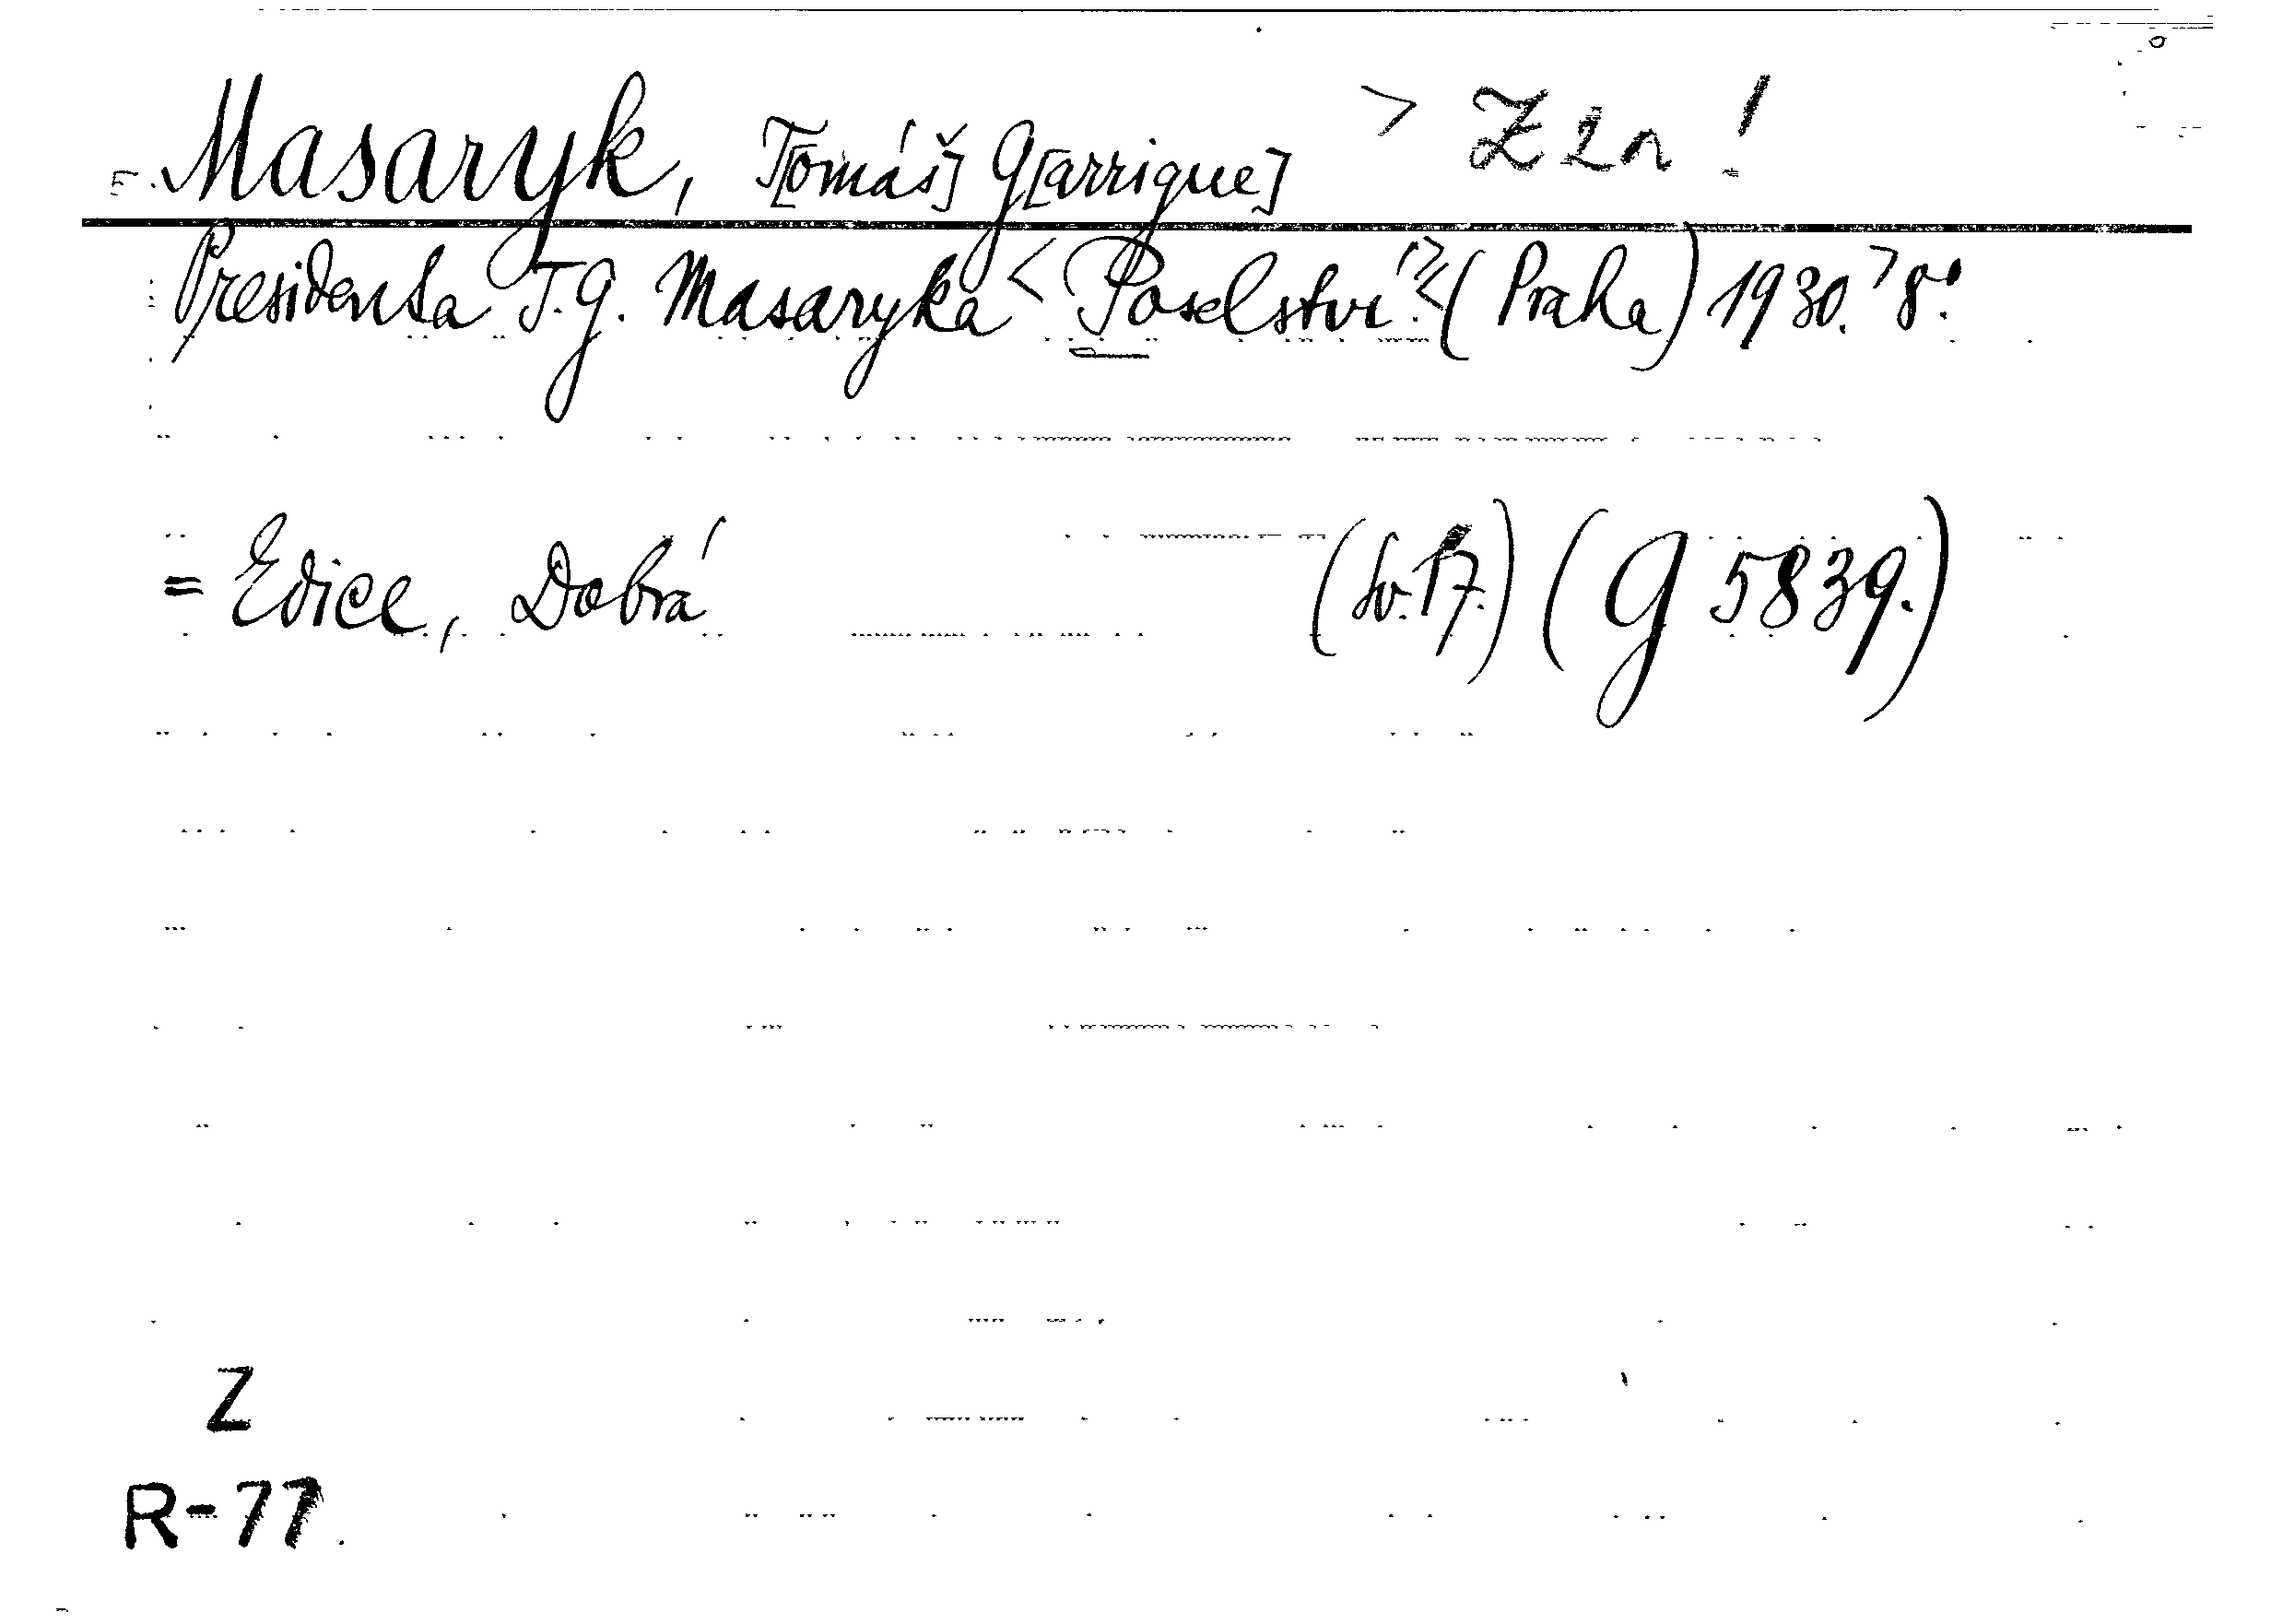 Masaryk, T[omáš] G[arrigue] > Z zn !
Presidenta T. G. Masaryka < Poselství.> < (Praha) 1930. > 8°.
= Edice, Dobrá (Sv. 17.) (G 5839.)
Z
R-77.